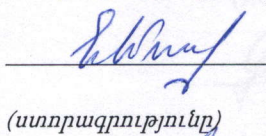 (ստորագրությունը)